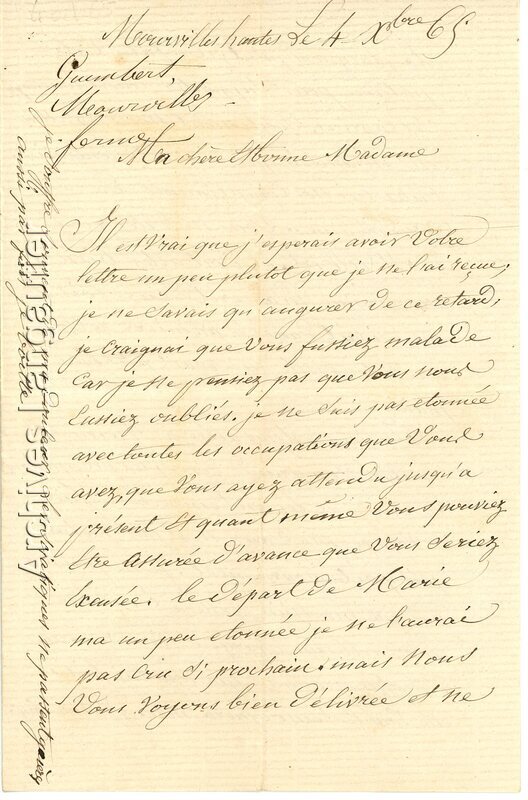 Mourvilles hautes Le 4 Xbre 65
Guimbert,
Mourvilles
Ma chère et bonne Madame
Il est vrai que j'esperais avoir Votre
lettre un peu plutot que je ne l'ai reçue,
je ne Savais qu'augurer de ce retard,
je craignai que Vous fussiez malade
Car je ne pensiez pas que Vous nous
Eussiez oubliés. je ne Suis pas etonnée
avec toutes les occupations que Vous
avez, que Vous ayez attendu jusqu'a
présent et quant même Vous pouviez
être assurée d'avance que Vous Seriez
Excusée. le départ de Marie
ma un peu etonnée je ne l'aurai
pas cru si prochain. mais nous
Vous Voyons bien Délivrée et ne
je souffre ne passent guère
aussi